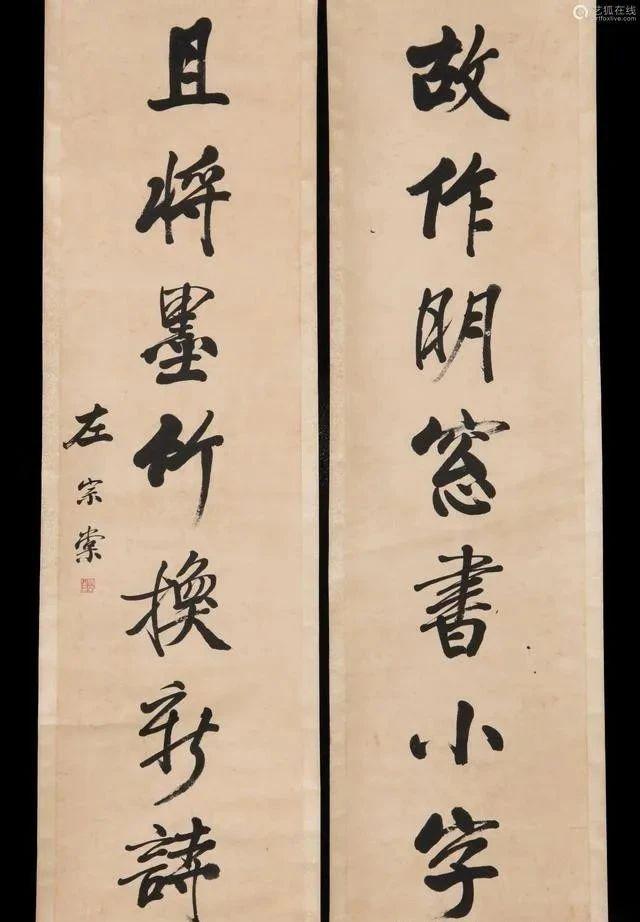 故作明窓書小字
且將墨竹換新詩
左宗棠
艺狐在线
artfoxlive.com